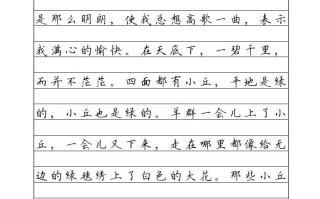 是那么明朗，使我总想高歌一曲，表示
我满心的愉快。在天底下，一碧千里，
而并不茫茫。四面都有小丘，平地是绿
的，小丘也是绿的。羊群一会儿上了小
丘，一会儿又下来，走在哪里都像给无
边的绿毯绣上了白色的大花。那些小丘